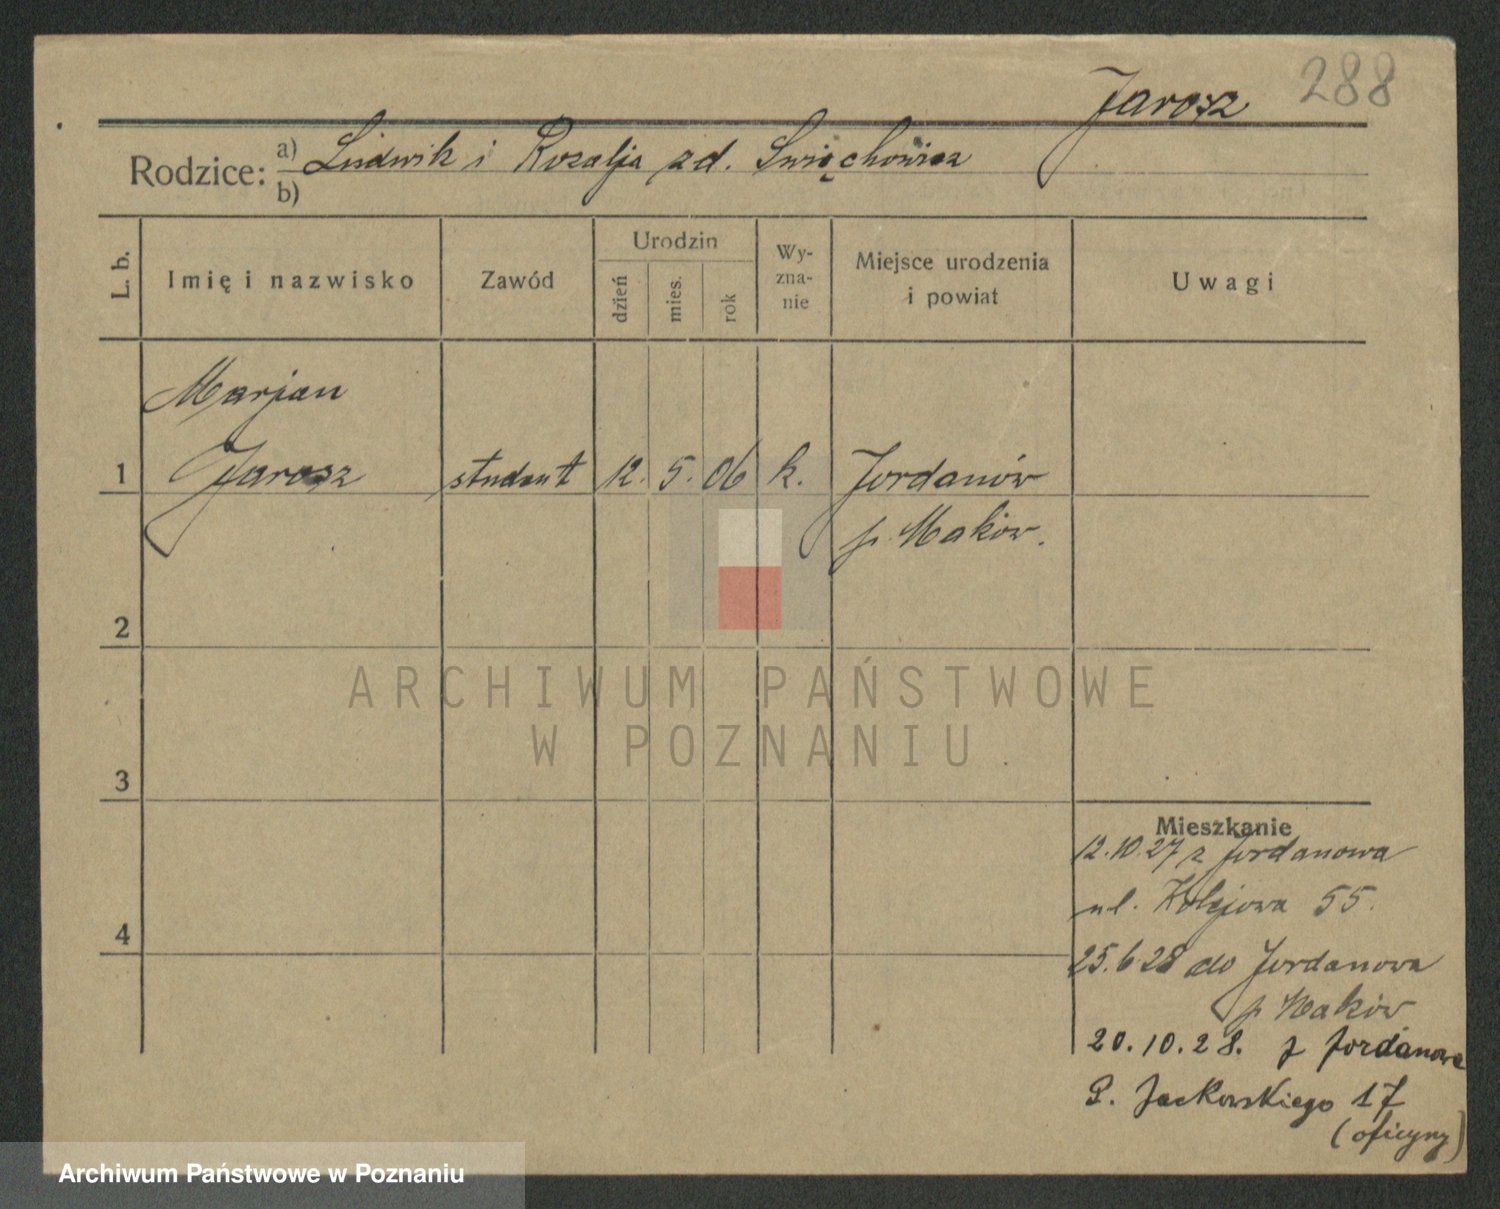 288
Jarosz
Rodzice: a) Ludwik i Rozalja zd. Święchowicz
b)
L. b.
Imię i nazwisko
Zawód
Urodzin
dzień
mies.
rok
Wy-
zna-
nie
Miejsce urodzenia
i powiat
Uwagi
Marjan
1 Jarosz student 12. 5. 06 k. Jordanów
p. Maków.
2
3
4
ARCHIWUM PAŃSTWOWE
W POZNANIU
Mieszkanie
12.10.27 z Jordanowa
ul. Kolejowa 55.
25.6.28 do Jordanowa
p. Maków
20.10.28. z Jordanowa
P. Jackowskiego 17
(oficyny)
Archiwum Państwowe w Poznaniu